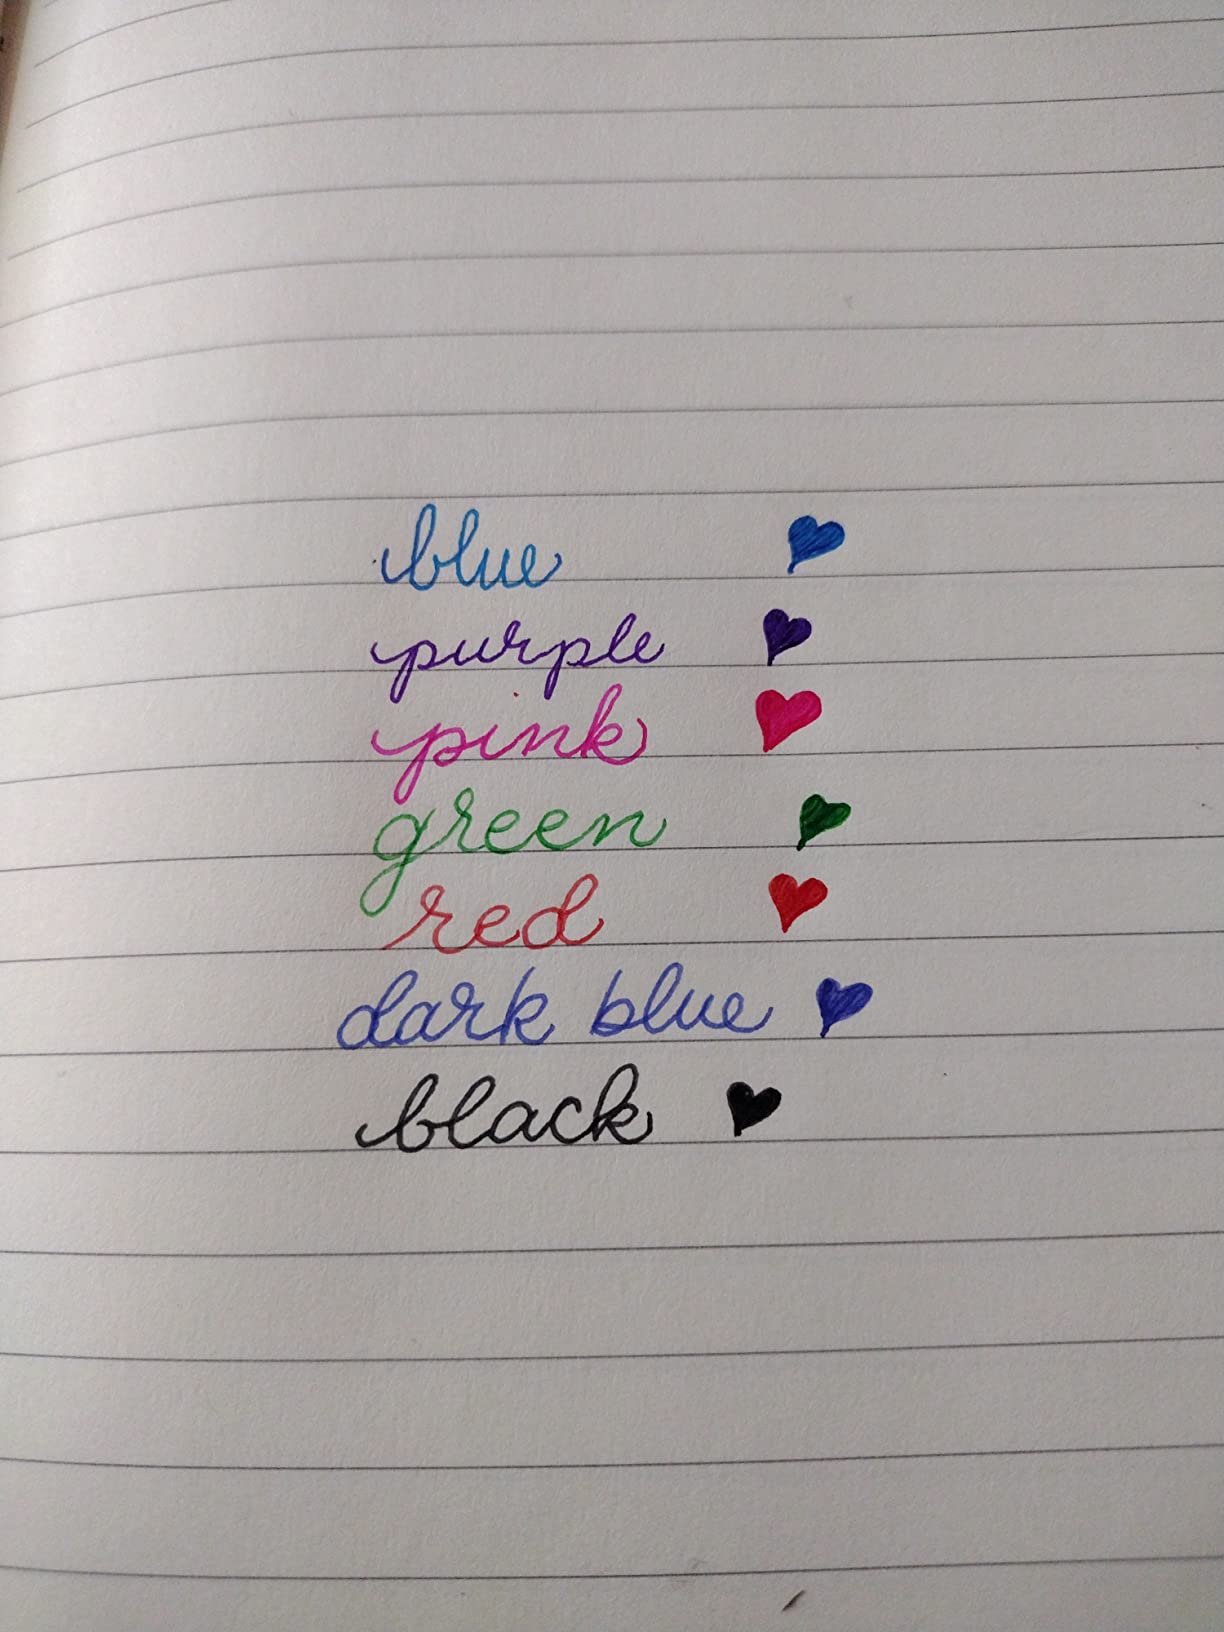 blue
purple
pink
green
red
dark blue
black